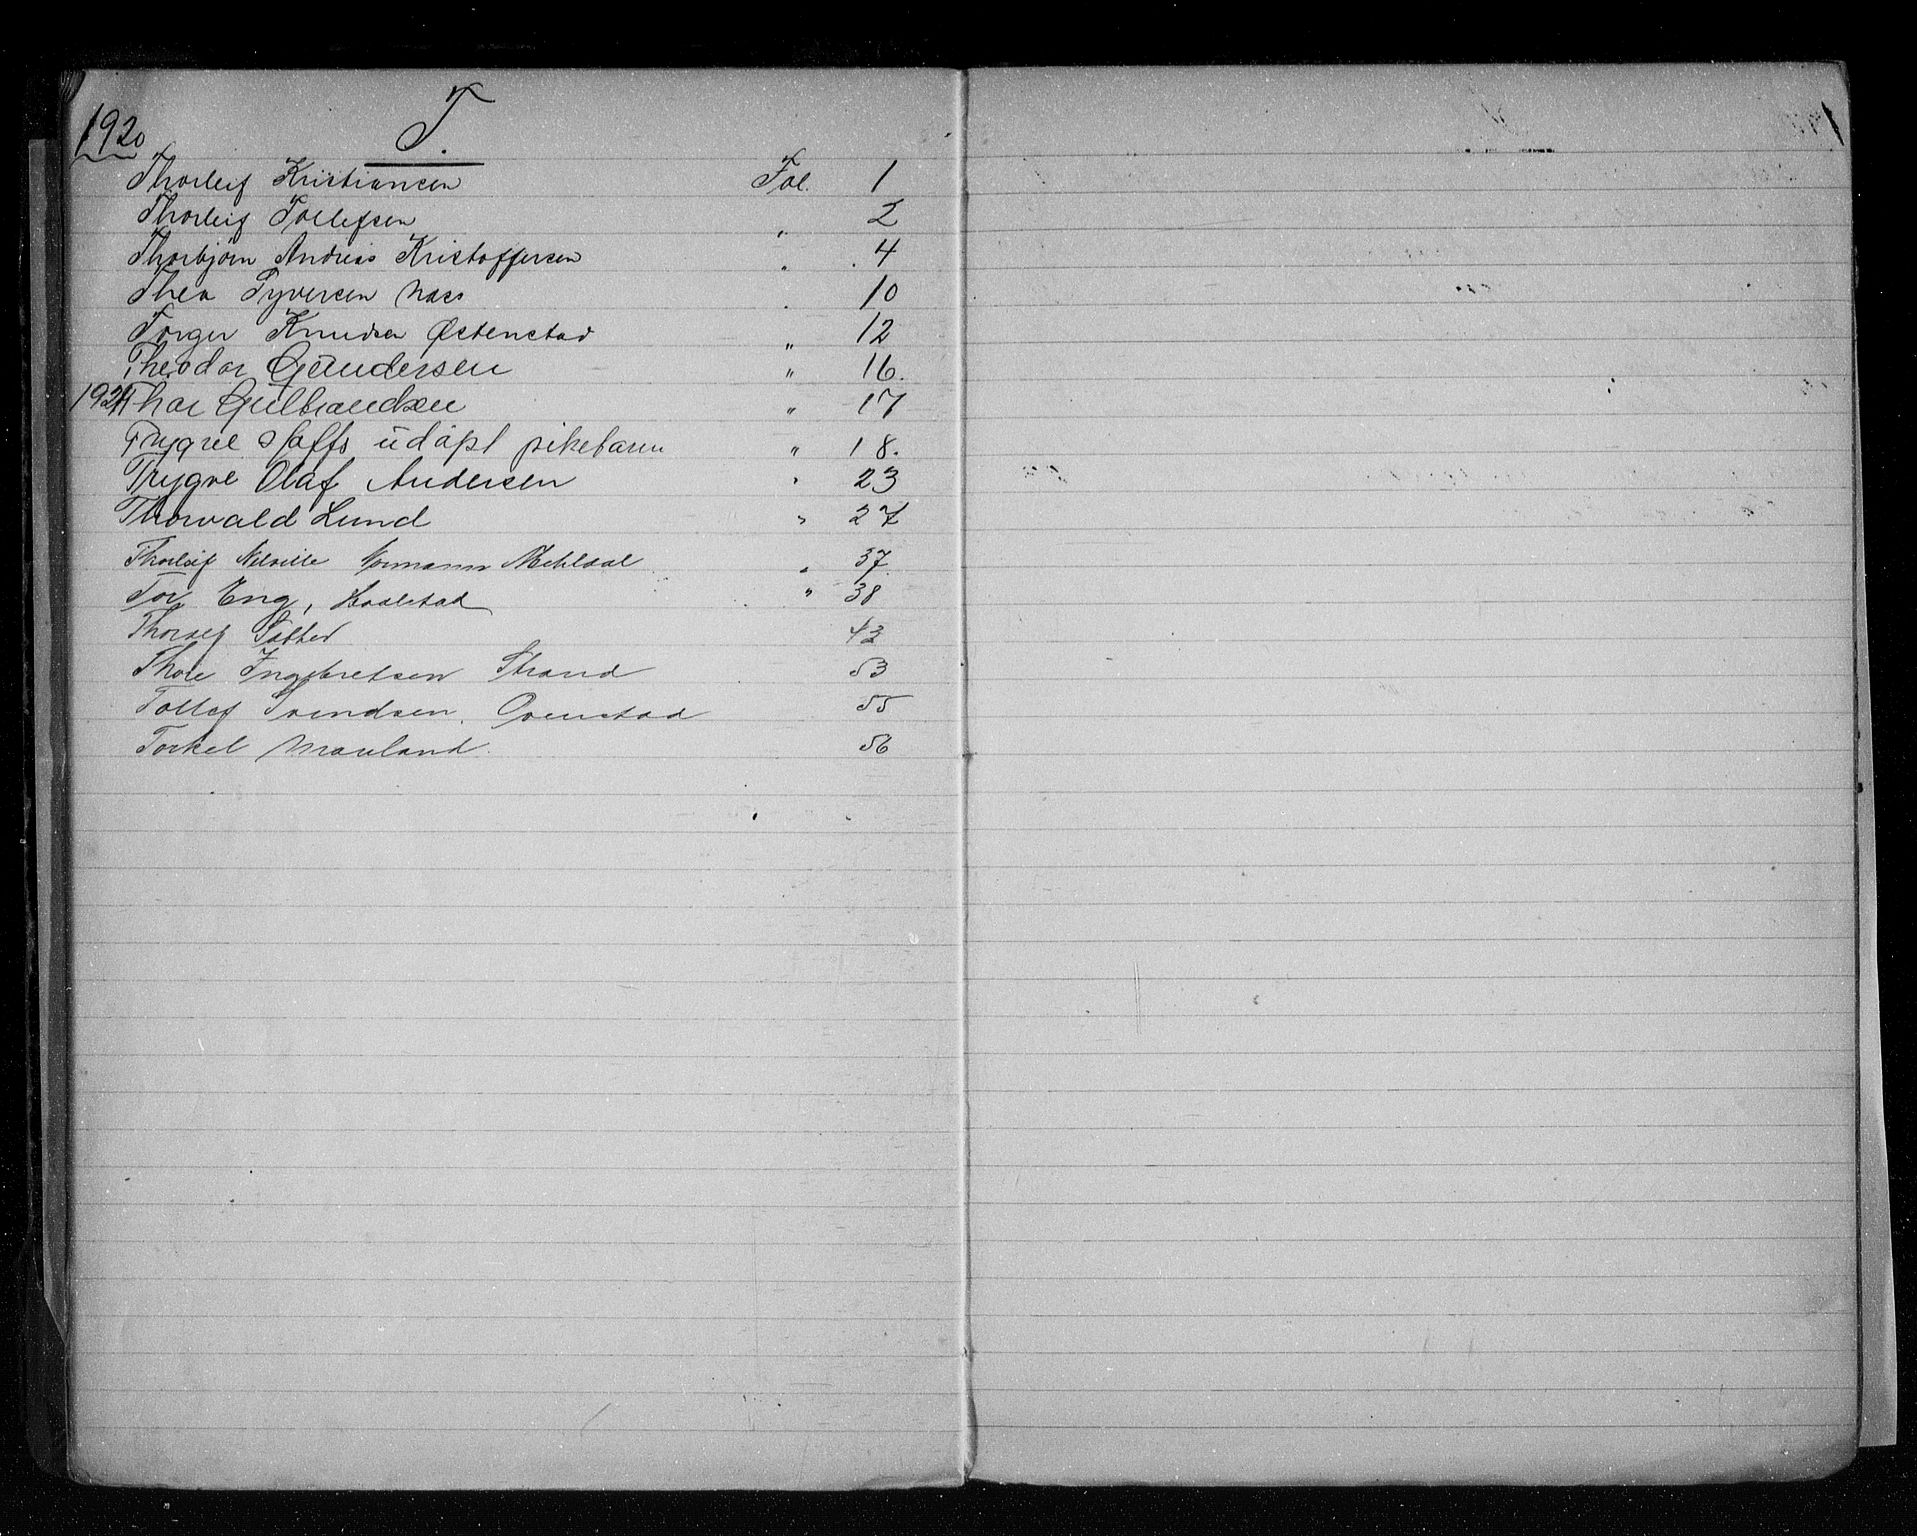 1920
T.
Thorleif Kristiansen Fol. 1
Thorleif Tollefsen " 2
Thorbjørn Andreas Kristoffersen " 4
Thea Syversen Næss " 10
Torger Knudsen Østenstad " 12
Theodor Gundersen " 16.
1921 Thor Gulbrandsen " 17
Trygve udøpt pikebarn " 18.
Trygve Olaf Andersen " 23
Thorvald Lund " 27
Thorleif Melville Normann Mehldal " 37
Tor Eng, " 38
Thorleif Sætter 43
Thore Ingebretsen Strand 53
Tollef Svendsen, Ovenstad 55
Torkel Mauland. 56
1